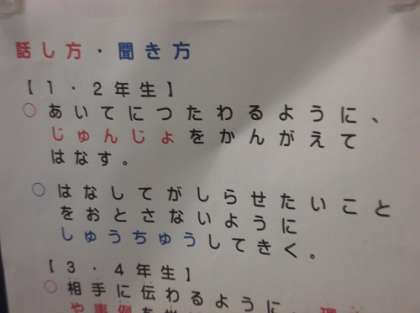 話し方・聞き方
【1・2年生】
○ あいてにつたわるように、
じゅんじょをかんがえて
はなす。
○ はなしてがしらせたいこと
をおとさないように
しゅうちゅうしてきく。
【3・4年生】
○ 相手に伝わるように、理
や事例を